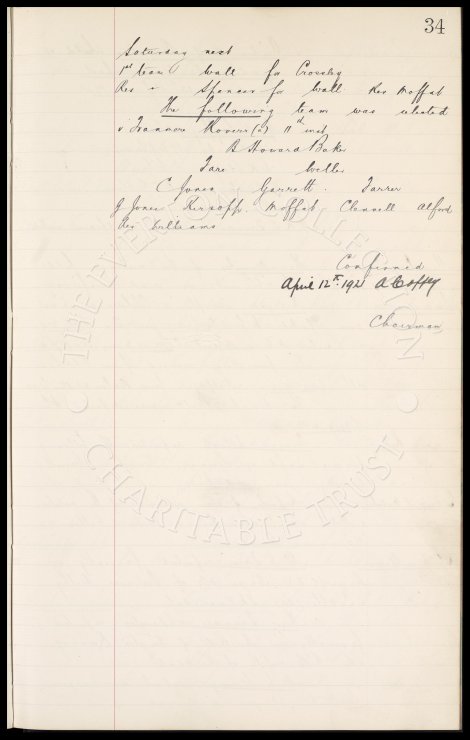 34
Saturday next
1st team Wall for Crossley
Res " Spencer for Wall Res Moffat
The following team was elected
v Tranmere Rovers (a) 11th inst
B Howard Baker
Fare Weller
C Jones Garrett Farrer
J Jones Kirsopp Moffat Clennell Alford
Res Williams
Confirmed
April 12th 1921 A Coffey
Chairman
THE EVERTON COLLECTION
CHARITABLE TRUST